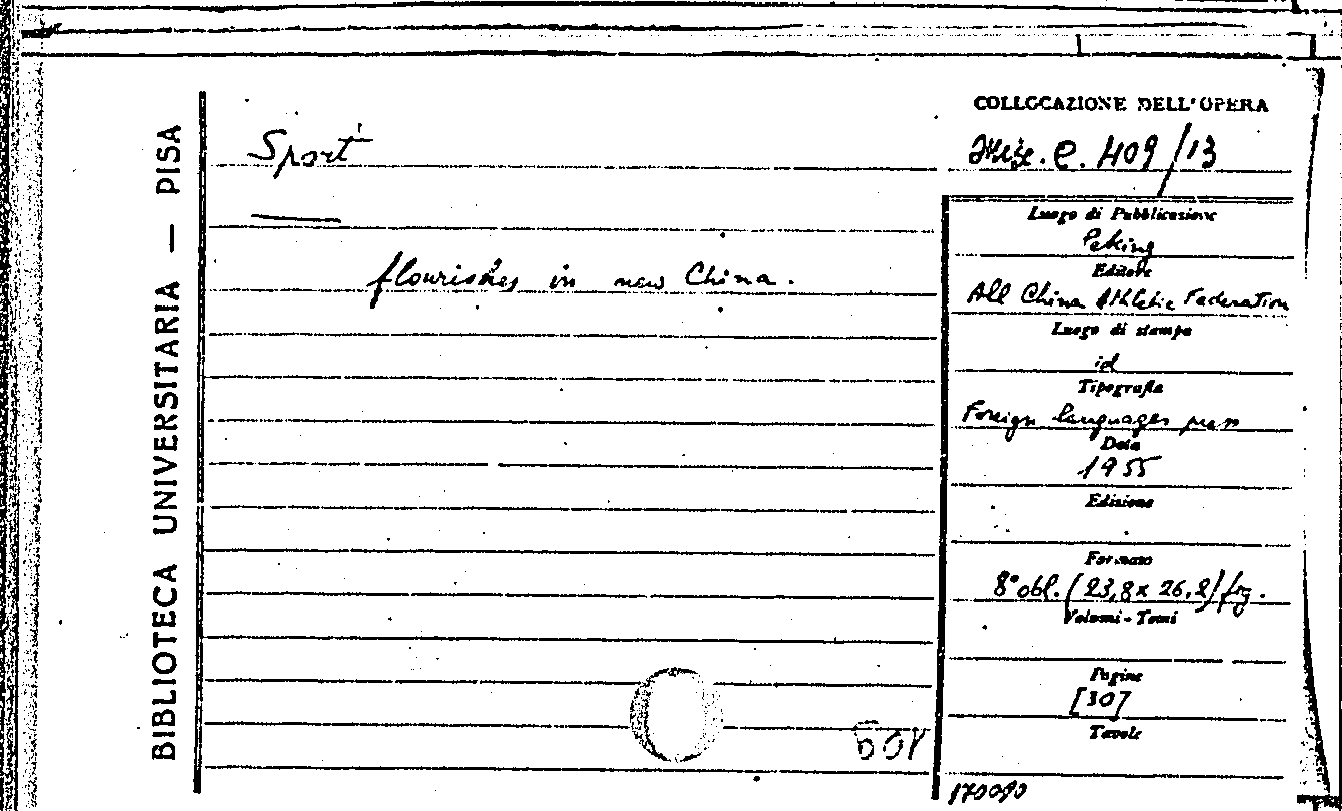 BIBLIOTECA UNIVERSITARIA — PISA
Sport
flourishes in new China.
COLLOCAZIONE DELL'OPERA
Misc. C. 409/13
Luogo di Pubblicazione
Peking
Editore
All China Athletic Federation
Luogo di stampa
id
Tipografia
Foreign languages press
Data
1955
Edizione
Formato
8° obl. (23,8 x 26,2) fig.
Volumi - Tomi
Pagine
[30]
Tavole